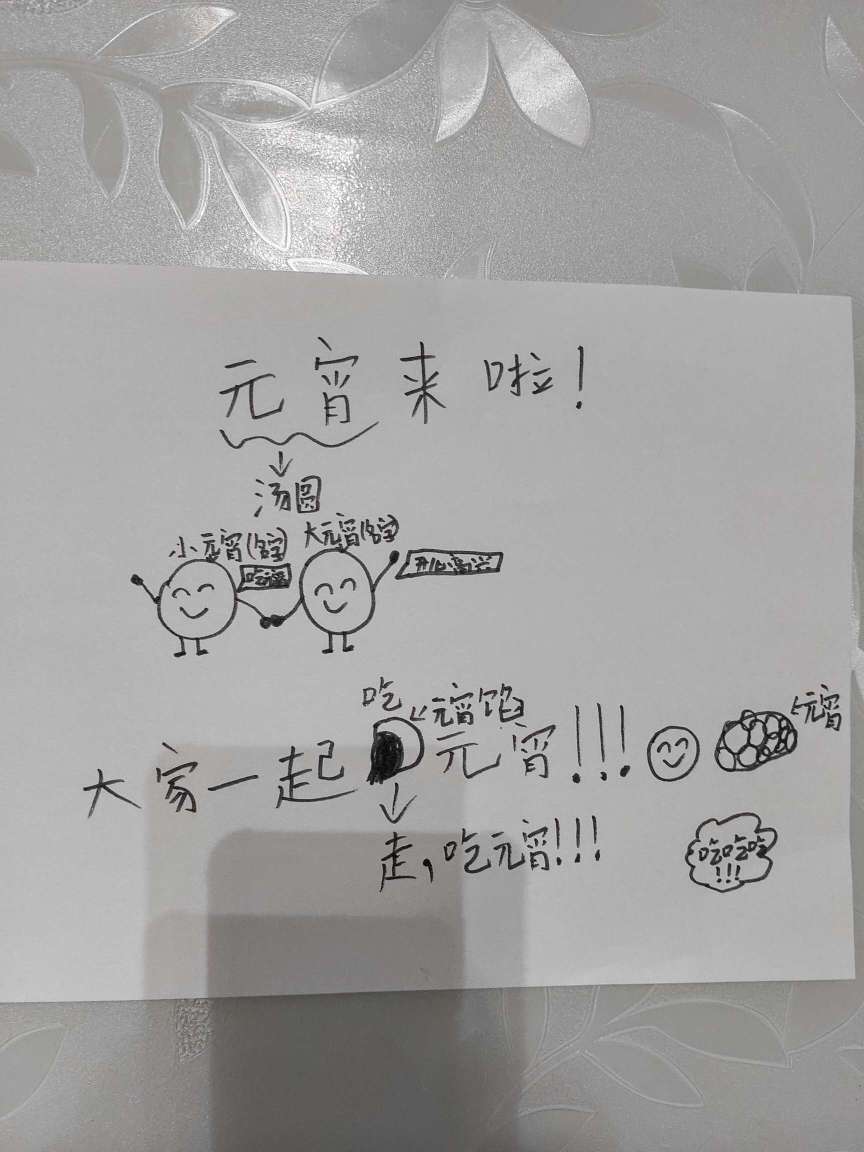 元宵来啦!
汤圆
小元宵(名字)
大元宵(名字)
吃元宵
开心
吃
元宵馅
大家一起元宵!!!
元宵
走,吃元宵!!!
吃吃吃
!!!